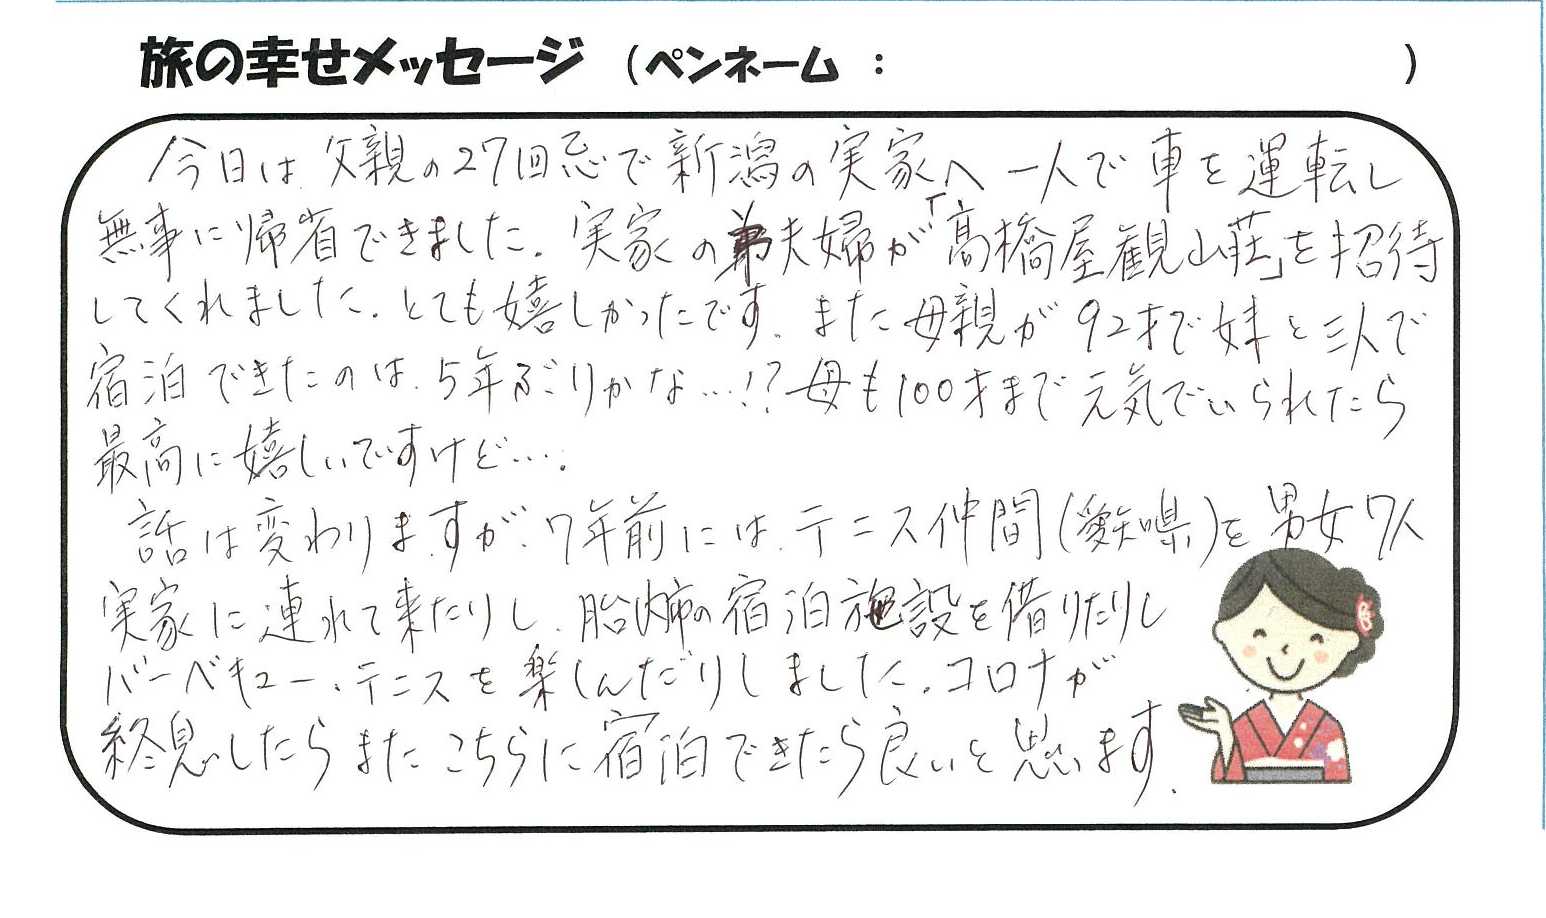 旅の幸せメッセージ （ペンネーム ： ）
今日は 父親の27回忌で新潟の実家へ 一人で 車を運転し
無事に帰省できました。実家の弟夫婦が「高橋屋観山荘」を招待
してくれました。とても嬉しかったです。また母親が92才で妹と三人で
宿泊できたのは、5年ぶりかな…!? 母も100才まで元気でいられたら
最高に嬉しいですけど…。
話は変わりますが、7年前には、テニス仲間(愛知県)を男女7人
実家に連れて来たりし、胎内市の宿泊施設を借りたりし
バーベキュー、テニスを楽しんだりしました。コロナが
終息したらまたこちらに宿泊できたら良いと思います。